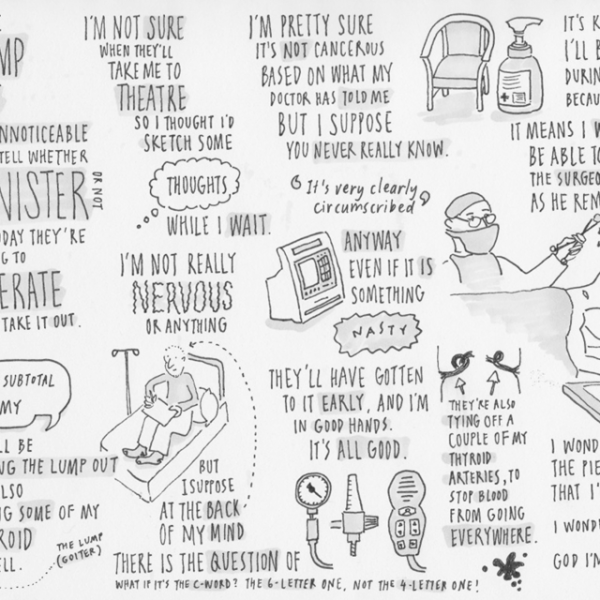 MP
NNOTICEABLE
TELL WHETHER
NISTER
OR NOT
DAY THEY'RE
G TO
ERATE
TAKE IT OUT.
SUBTOTAL
MY
LL BE
NG THE LUMP OUT
LSO
NG SOME OF MY
ROID
ELL.
THE LUMP
(GOITER)
I'M NOT SURE
WHEN THEY'LL
TAKE ME TO
THEATRE
SO I THOUGHT I'D
SKETCH SOME
THOUGHTS
WHILE I WAIT.
I'M NOT REALLY
NERVOUS
OR ANYTHING
BUT
I SUPPOSE
AT THE BACK
OF MY MIND
THERE IS THE QUESTION OF
WHAT IF IT'S THE C-WORD? THE 6-LETTER ONE, NOT THE 4-LETTER ONE!
I'M PRETTY SURE
IT'S NOT CANCEROUS
BASED ON WHAT MY
DOCTOR HAS TOLD ME
BUT I SUPPOSE
YOU NEVER REALLY KNOW.
"It's very clearly
circumscribed"
ANYWAY
EVEN IF IT IS
SOMETHING
NASTY
THEY'LL HAVE GOTTEN
TO IT EARLY, AND I'M
IN GOOD HANDS.
IT'S ALL GOOD.
THEY'RE ALSO
TYING OFF A
COUPLE OF MY
THYROID
ARTERIES, TO
STOP BLOOD
FROM GOING
EVERYWHERE.
IT'S K
I'LL B
DURIN
BECAU
IT MEANS I W
BE ABLE TO
THE SURGEO
AS HE REM
I WOND
THE PIE
THAT I'
I WONDE
GOD I'M